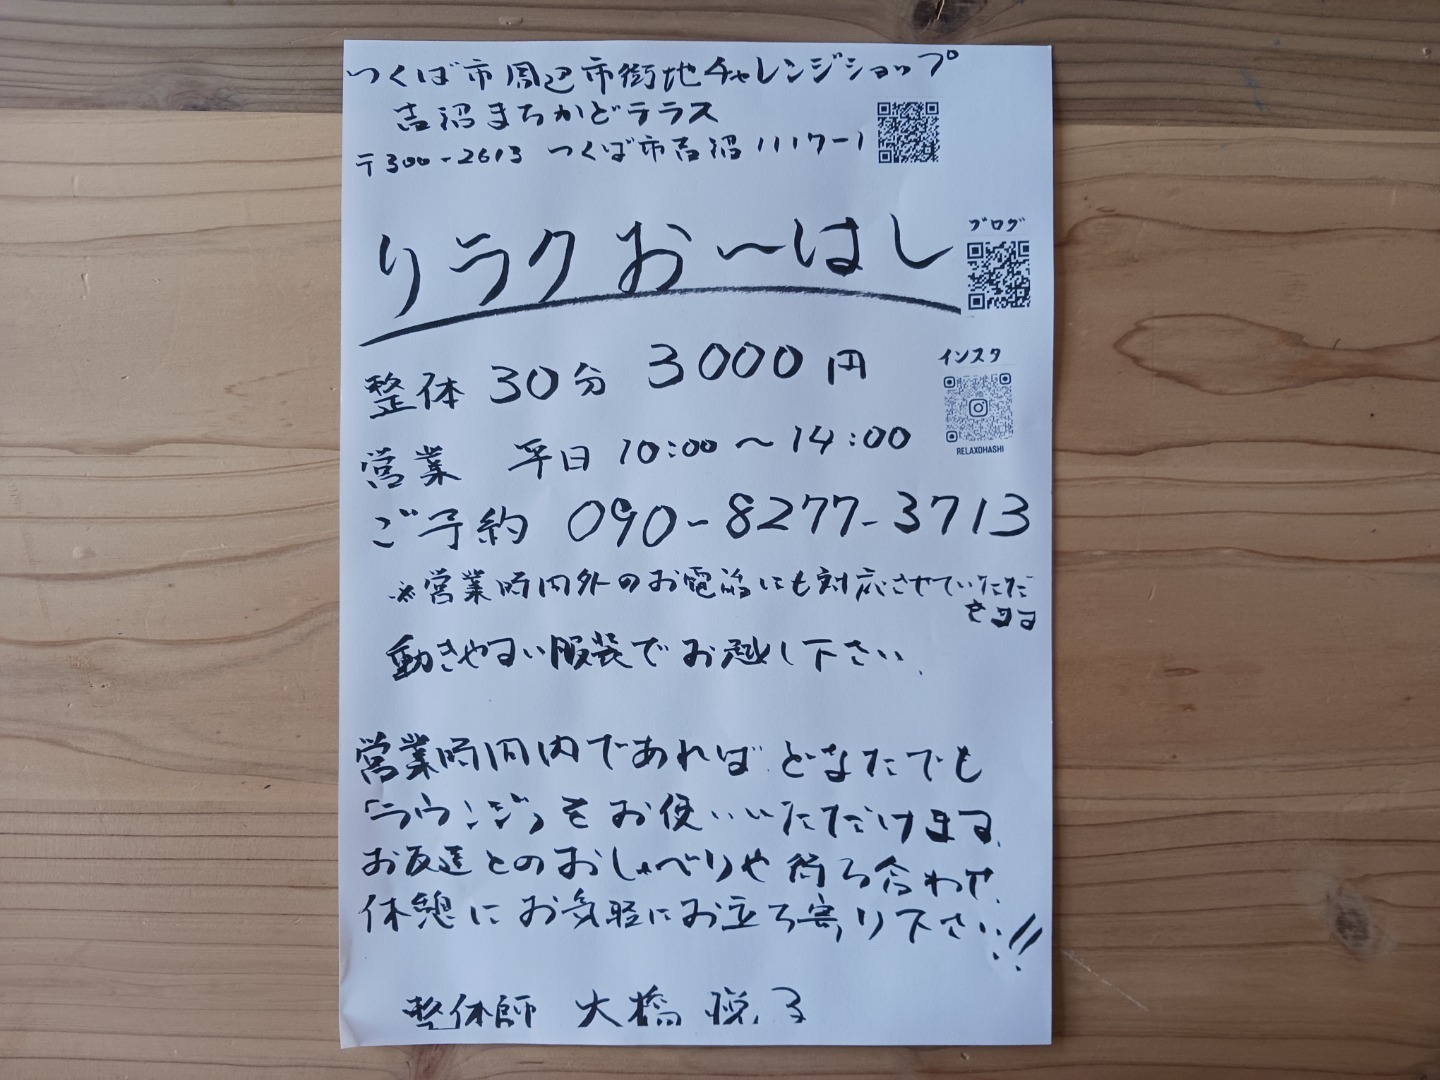 つくば市周辺市街地チャレンジショップ
吉沼まちかどテラス
〒300-2613 つくば市吉沼1117-1
リラクお〜はし
ブログ
インスタ
RELAXOHASHI
整体 30分 3000円
営業 平日 10:00〜14:00
ご予約 090-8277-3713
※営業時間外のお電話にも対応させていただ
きます
動きやすい服装でお越し下さい。
営業時間内であれば、どなたでも
「ラウンジ」をお使いいただけます。
お友達とのおしゃべりや待ち合わせ、
休憩にお気軽にお立ち寄り下さい!!
整体師 大橋 悦子